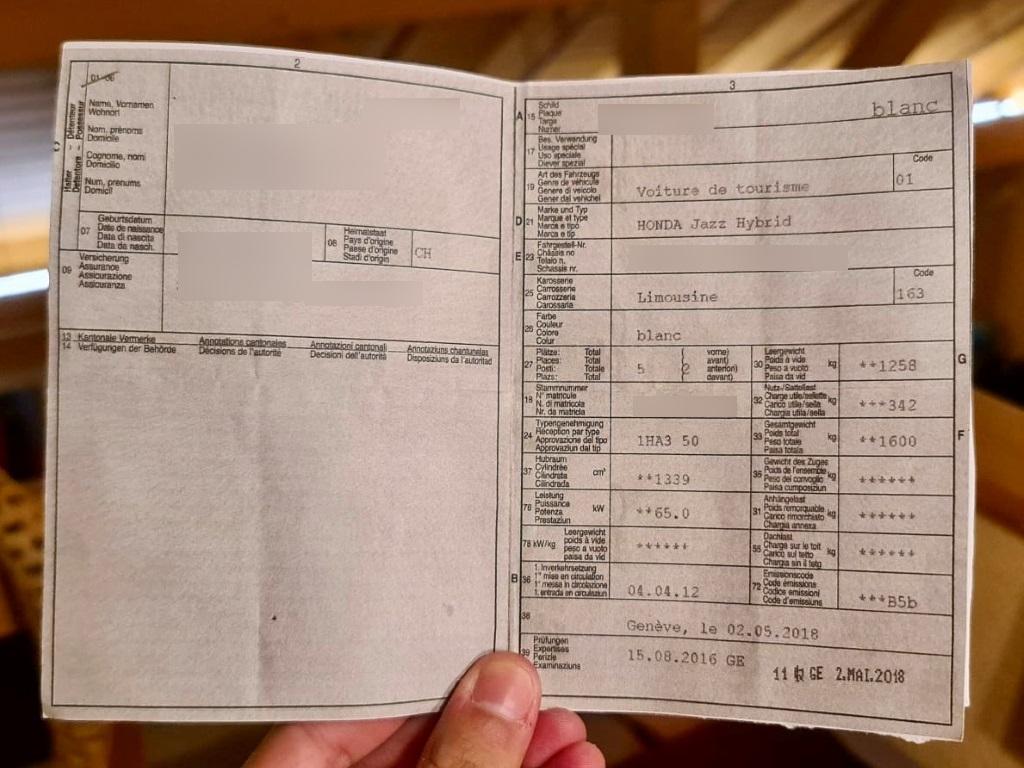 2
01-06
Halter Détenteur
Detentore Possessur
Name, Vornamen
Wohnort
Nom, prénoms
Domicile
Cognome, nomi
Domicilio
Num, prenums
Domicil
07
Geburtsdatum
Date de naissance
Data di nascita
Data da nasch.
08
Heimatstaat
Pays d'origine
Paese d'origine
Stadi d'origin
CH
09
Versicherung
Assurance
Assicurazione
Assicuranza
13 Kantonale Vermerke Annotations cantonales Annotazioni cantonali Annotaziuns chantunalas
14 Verfügungen der Behörde Décisions de l'autorité Decisioni dell'autorità Disposiziuns da l'autoritad
3
A 15
Schild
Plaque
Targa
Numer
blanc
17
Bes. Verwendung
Usage spécial
Uso speciale
Diever spezial
19
Art des Fahrzeugs
Genre de véhicule
Genere di veicolo
Gener dal vehichel
Voiture de tourisme
Code
01
D 21
Marke und Typ
Marque et type
Marca e tipo
Marca e tip
HONDA Jazz Hybrid
E 23
Fahrgestell-Nr.
Châssis no
Telaio n.
Schassis nr.
25
Karosserie
Carrosserie
Carrozzeria
Carossaria
Limousine
Code
163
26
Farbe
Couleur
Colore
Colur
blanc
27
Plätze: Total
Places: Total
Posti: Totale
Plazs: Total
5 2
vorne)
avant)
anteriori)
davant)
30
Leergewicht
Poids à vide
Peso a vuoto
Paisa da vid
kg
**1258
G
18
Stammnummer
N° matricule
N. di matricola
Nr. da matricla
32
Nutz-/Sattellast
Charge utile/sellette
Carico utile/sella
Chargia utila/sella
kg
***342
24
Typengenehmigung
Réception par type
Approvazione del tipo
Approvaziun dal tip
1HA3 50
33
Gesamtgewicht
Poids total
Peso totale
Paisa totala
kg
**1600
F
37
Hubraum
Cylindrée
Cilindrata
Cilindrada
cm³
**1339
35
Gewicht des Zuges
Poids de l'ensemble
Peso del convoglio
Paisa cumposiziun
kg
******
76
Leistung
Puissance
Potenza
Prestaziun
kW
**65.0
31
Anhängelast
Poids remorquable
Carico rimorchiato
Chargia annexa
kg
******
78 kW/kg
Leergewicht
poids à vide
peso a vuoto
paisa da vid
******
55
Dachlast
Charge sur le toit
Carico sul tetto
Chargia sin il tetg
kg
******
B 36
1. Inverkehrsetzung
1re mise en circulation
1a messa in circolazione
1. entrada en circulaziun
04.04.12
72
Emissionscode
Code émissions
Codice emissioni
Code d'emissiuns
***B5b
38
Genève, le 02.05.2018
39
Prüfungen
Expertises
Perizie
Examinaziuns
15.08.2016 GE
11 GE 2.MAI.2018